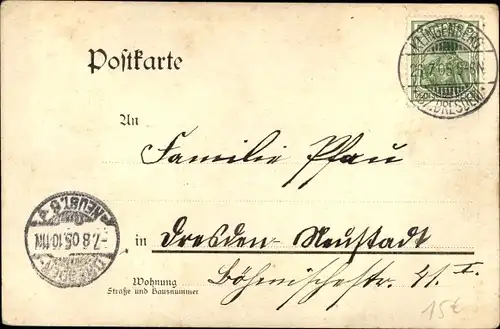 Postkarte
KLINGENBERG
7.05
BZ. DRESDEN
An
Familie Pfau
-7.8.05.10-11N
in Dresden-Neustadt
Wohnung
Straße und Hausnummer
Böhmischestr. 41 I.
15€